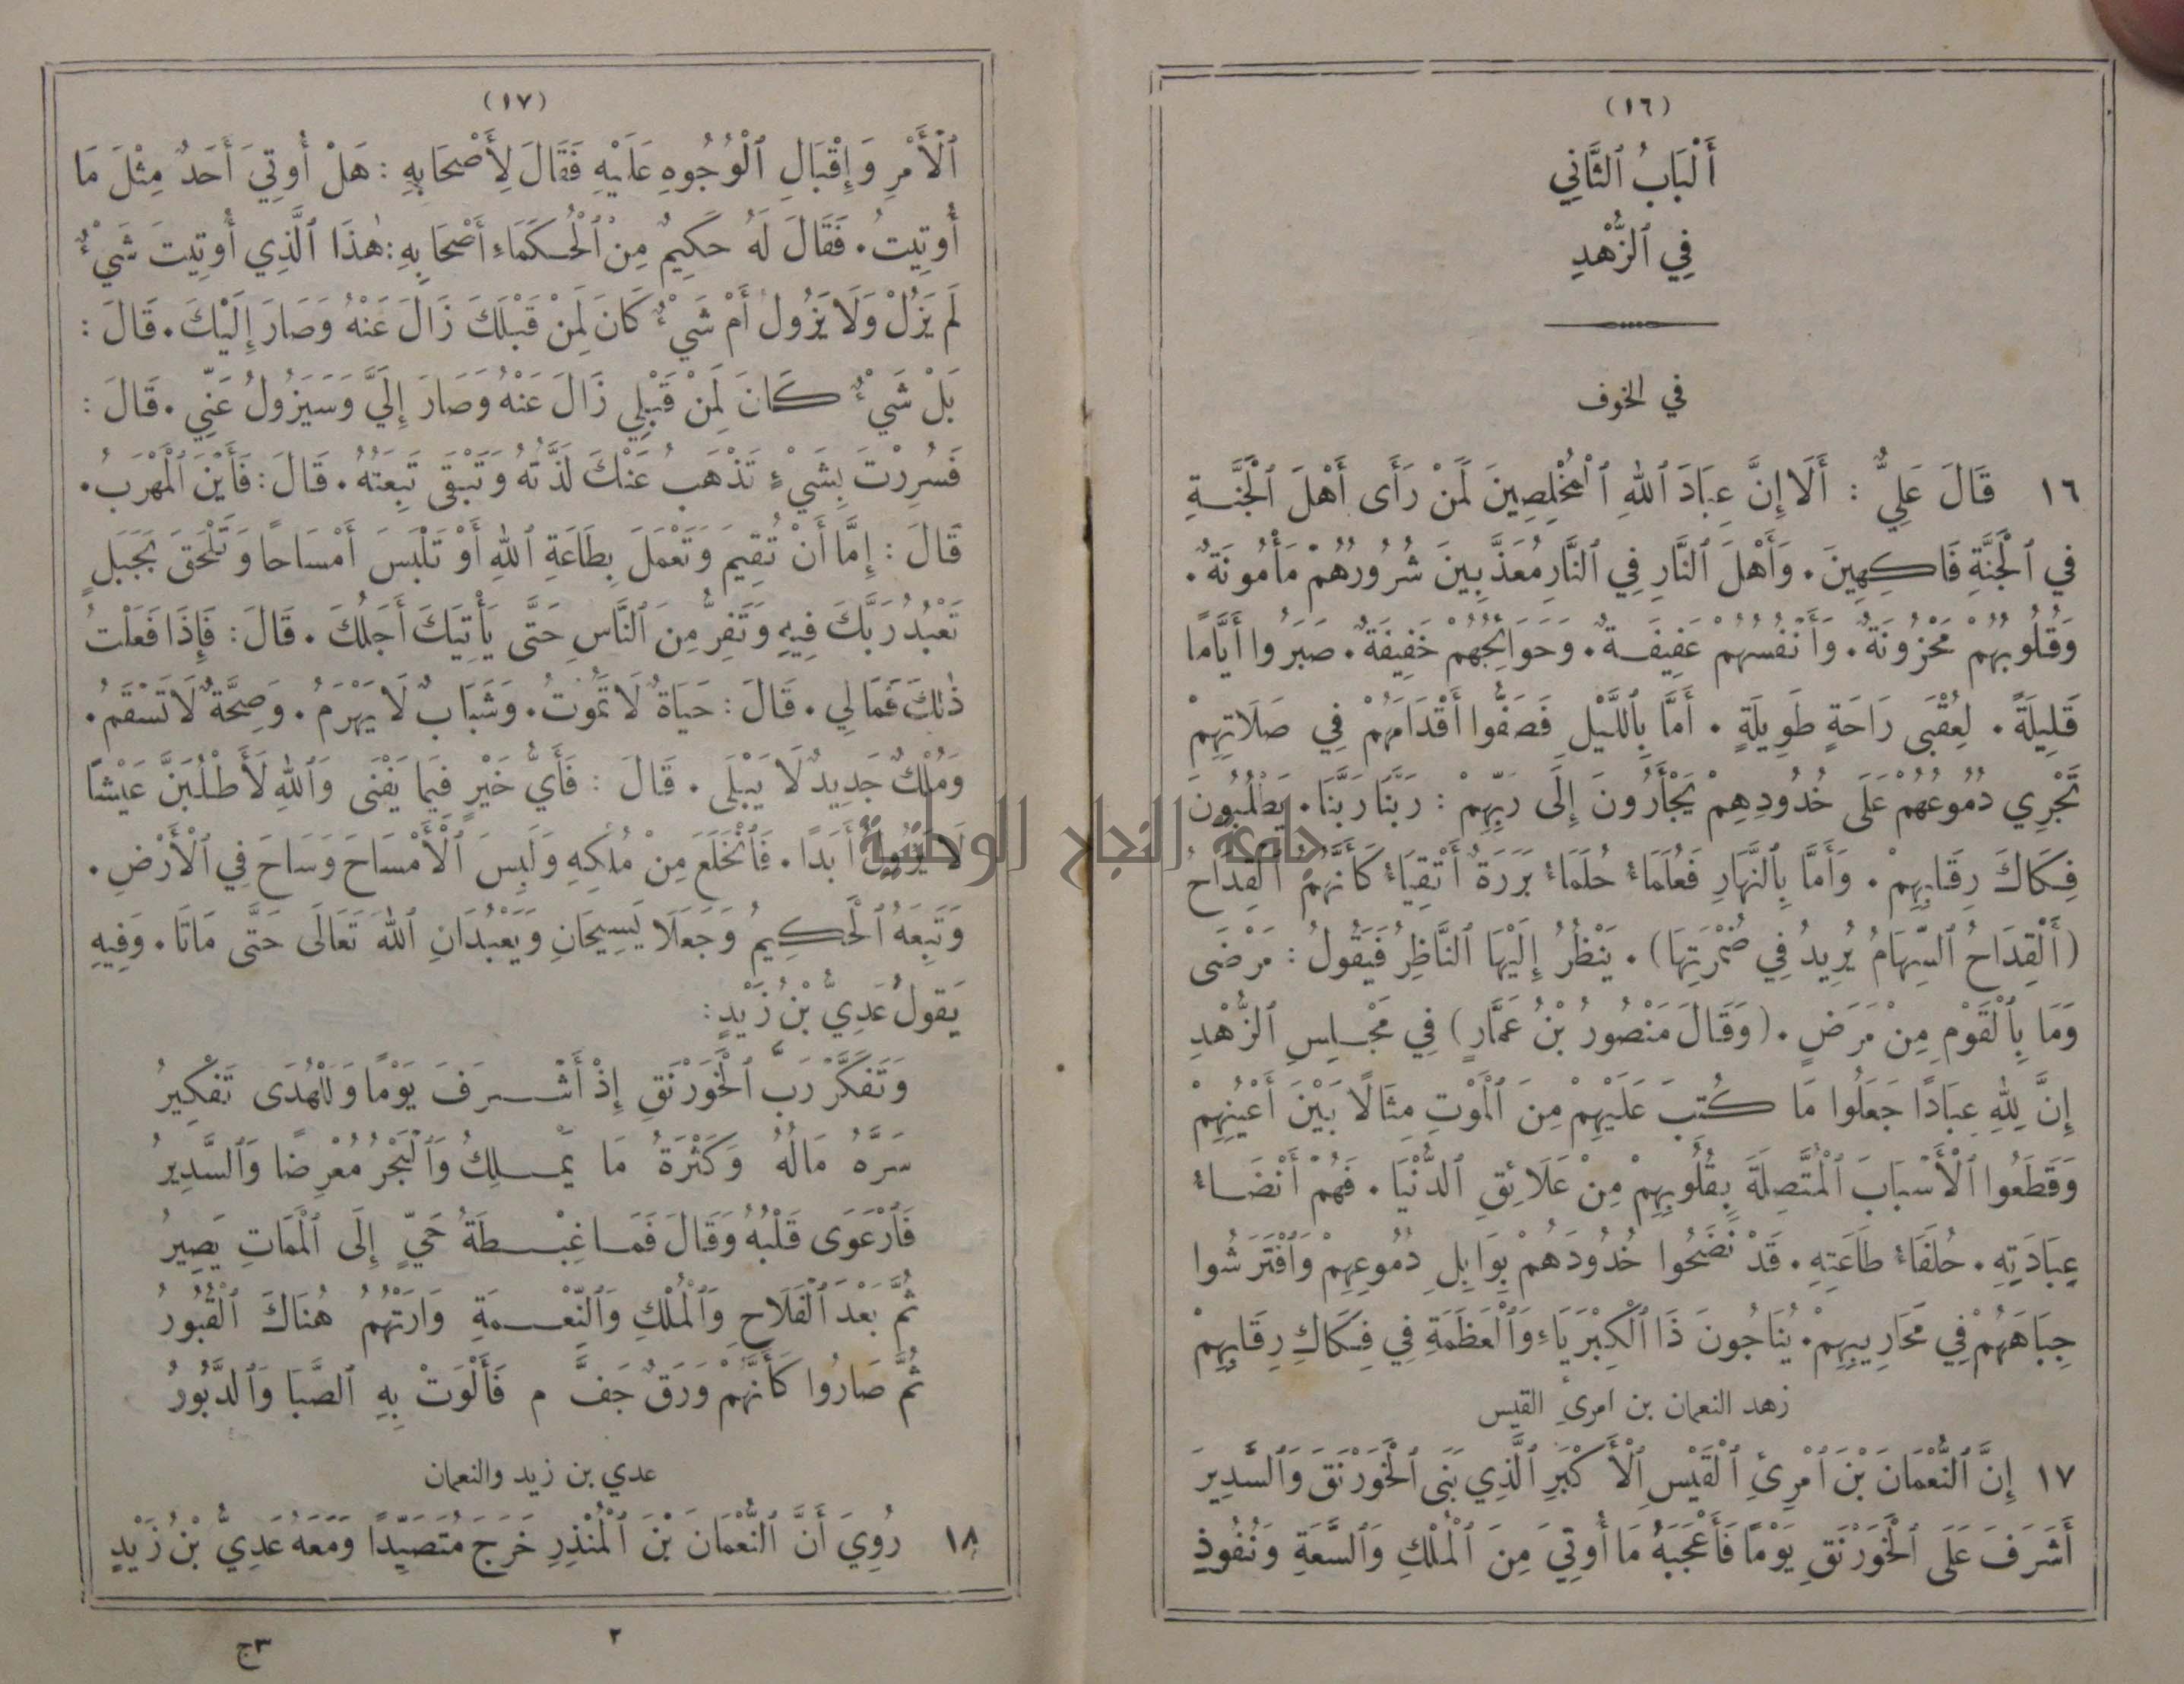 (١٦)
أَلْبَابُ ٱلثَّانِي
فِي ٱلزُّهْدِ
في الخوف
١٦ قَالَ عَلِيٌّ : أَلَا إِنَّ عِبَادَ ٱللّٰهِ ٱلْمُخْلِصِينَ لَمَنْ رَأَى أَهْلَ ٱلْجَنَّةِ
فِي ٱلْجَنَّةِ فَاكِهِينَ. وَأَهْلَ ٱلنَّارِ فِي ٱلنَّارِ مُعَذَّبِينَ شُرُورُهُمْ مَأْمُونَةٌ.
وَقُلُوبُهُمْ مَحْزُونَةٌ. وَأَنْفُسُهُمْ عَفِيفَةٌ. وَحَوَائِجُهُمْ خَفِيفَةٌ. صَبَرُوا أَيَّامًا
قَلِيلَةً. لِعُقْبَى رَاحَةٍ طَوِيلَةٍ. أَمَّا بِٱللَّيْلِ فَصَفُّوا أَقْدَامَهُمْ فِي صَلَاتِهِمْ
تَجْرِي دُمُوعُهُمْ عَلَى خُدُودِهِمْ يَجْأَرُونَ إِلَى رَبِّهِمْ : رَبَّنَا رَبَّنَا. يَطْلُبُونَ
فِكَاكَ رِقَابِهِمْ. وَأَمَّا بِٱلنَّهَارِ فَعُلَمَاءُ حُلَمَاءُ بَرَرَةٌ أَتْقِيَاءُ كَأَنَّهُمُ ٱلْقِدَاحُ
(أَلْقِدَاحُ ٱلسِّهَامُ يُرِيدُ فِي ضُمْرَتِهَا). يَنْظُرُ إِلَيْهَا ٱلنَّاظِرُ فَيَقُولُ : مَرْضَى
وَمَا بِٱلْقَوْمِ مِنْ مَرَضٍ. (وَقَالَ مَنْصُورُ بْنُ عَمَّارٍ) فِي مَجْلِسِ ٱلزُّهْدِ
إِنَّ لِلّٰهِ عِبَادًا جَعَلُوا مَا كُتِبَ عَلَيْهِمْ مِنَ ٱلْمَوْتِ مِثَالًا بَيْنَ أَعْيُنِهِمْ
وَقَطَعُوا ٱلْأَسْبَابَ ٱلْمُتَّصِلَةَ بِقُلُوبِهِمْ مِنْ عَلَائِقِ ٱلدُّنْيَا. فَهُمْ أَنْضَاءُ
عِبَادَتِهِ. حُلَفَاءُ طَاعَتِهِ. قَدْ نَضَحُوا خُدُودَهُمْ بِوَابِلِ دُمُوعِهِمْ وَٱفْتَرَشُوا
جِبَاهَهُمْ فِي مَحَارِيبِهِمْ. يُنَاجُونَ ذَا ٱلْكِبْرِيَاءِ وَٱلْعَظَمَةِ فِي فِكَاكِ رِقَابِهِمْ
زهد النعمان بن امرئ القيس
١٧ إِنَّ ٱلنُّعْمَانَ بْنَ ٱمْرِئِ ٱلْقَيْسِ ٱلْأَكْبَرِ ٱلَّذِي بَنَى ٱلْخَوَرْنَقَ وَٱلسَّدِيرَ
أَشْرَفَ عَلَى ٱلْخَوَرْنَقِ يَوْمًا فَأَعْجَبَهُ مَا أُوتِيَ مِنَ ٱلْمُلْكِ وَٱلسَّعَةِ وَنُفُوذِ
(١٧)
ٱلْأَمْرِ وَإِقْبَالِ ٱلْوُجُوهِ عَلَيْهِ فَقَالَ لِأَصْحَابِهِ : هَلْ أُوتِيَ أَحَدٌ مِثْلَ مَا
أُوتِيتُ. فَقَالَ لَهُ حَكِيمٌ مِنْ ٱلْحُكَمَاءِ أَصْحَابِهِ: هٰذَا ٱلَّذِي أُوتِيتَ شَيْءٌ
لَمْ يَزُلْ وَلَا يَزُولُ أَمْ شَيْءٌ كَانَ لِمَنْ قَبْلَكَ زَالَ عَنْهُ وَصَارَ إِلَيْكَ. قَالَ :
بَلْ شَيْءٌ كَانَ لِمَنْ قَبْلِي زَالَ عَنْهُ وَصَارَ إِلَيَّ وَسَيَزُولُ عَنِّي. قَالَ :
فَسُرِرْتَ بِشَيْءٍ تَذْهَبُ عَنْكَ لَذَّتُهُ وَتَبْقَى تَبِعَتُهُ. قَالَ: فَأَيْنَ ٱلْمَهْرَبُ.
قَالَ : إِمَّا أَنْ تُقِيمَ وَتَعْمَلَ بِطَاعَةِ ٱللّٰهِ أَوْ تَلْبَسَ أَمْسَاحًا وَتَلْحَقَ بِجَبَلٍ
تَعْبُدُ رَبَّكَ فِيهِ وَتَفِرُّ مِنَ ٱلنَّاسِ حَتَّى يَأْتِيَكَ أَجَلُكَ. قَالَ: فَإِذَا فَعَلْتُ
ذٰلِكَ فَمَا لِي. قَالَ: حَيَاةٌ لَا تَمُوتُ. وَشَبَابٌ لَا يَهْرَمُ. وَصِحَّةٌ لَا تَسْقَمُ.
وَمُلْكٌ جَدِيدٌ لَا يَبْلَى. قَالَ : فَأَيُّ خَيْرٍ فِيمَا يَفْنَى وَٱللّٰهِ لَأَطْلُبَنَّ عَيْشًا
لَا يَزُولُ أَبَدًا. فَٱنْخَلَعَ مِنْ مُلْكِهِ وَلَبِسَ ٱلْأَمْسَاحَ وَسَاحَ فِي ٱلْأَرْضِ.
وَتَبِعَهُ ٱلْحَكِيمُ وَجَعَلَا يَسِيحَانِ وَيَعْبُدَانِ ٱللّٰهَ تَعَالَى حَتَّى مَاتَا. وَفِيهِ
يَقُولُ عَدِيُّ بْنُ زَيْدٍ:
وَتَفَكَّرْ رَبَّ ٱلْخَوَرْنَقِ إِذْ أَشْرَفَ يَوْمًا وَلِلْهُدَى تَفْكِيرُ
سَرَّهُ مَالُهُ وَكَثْرَةُ مَا يَمْلِكُ وَٱلْبَحْرُ مُعْرِضًا وَٱلسَّدِيرُ
فَٱرْعَوَى قَلْبُهُ وَقَالَ فَمَا غِبْطَةُ حَيٍّ إِلَى ٱلْمَمَاتِ يَصِيرُ
ثُمَّ بَعْدَ ٱلْفَلَاحِ وَٱلْمُلْكِ وَٱلنِّعْمَةِ وَارَتْهُمُ هُنَاكَ ٱلْقُبُورُ
ثُمَّ صَارُوا كَأَنَّهُمْ وَرَقٌ جَفَّ م فَأَلْوَتْ بِهِ ٱلصَّبَا وَٱلدَّبُورُ
عدي بن زيد والنعمان
١٨ رُوِيَ أَنَّ ٱلنُّعْمَانَ بْنَ ٱلْمُنْذِرِ خَرَجَ مُتَصَيِّدًا وَمَعَهُ عَدِيُّ بْنُ زَيْدٍ
٢
ج٣
جامعة النجاح الوطنية